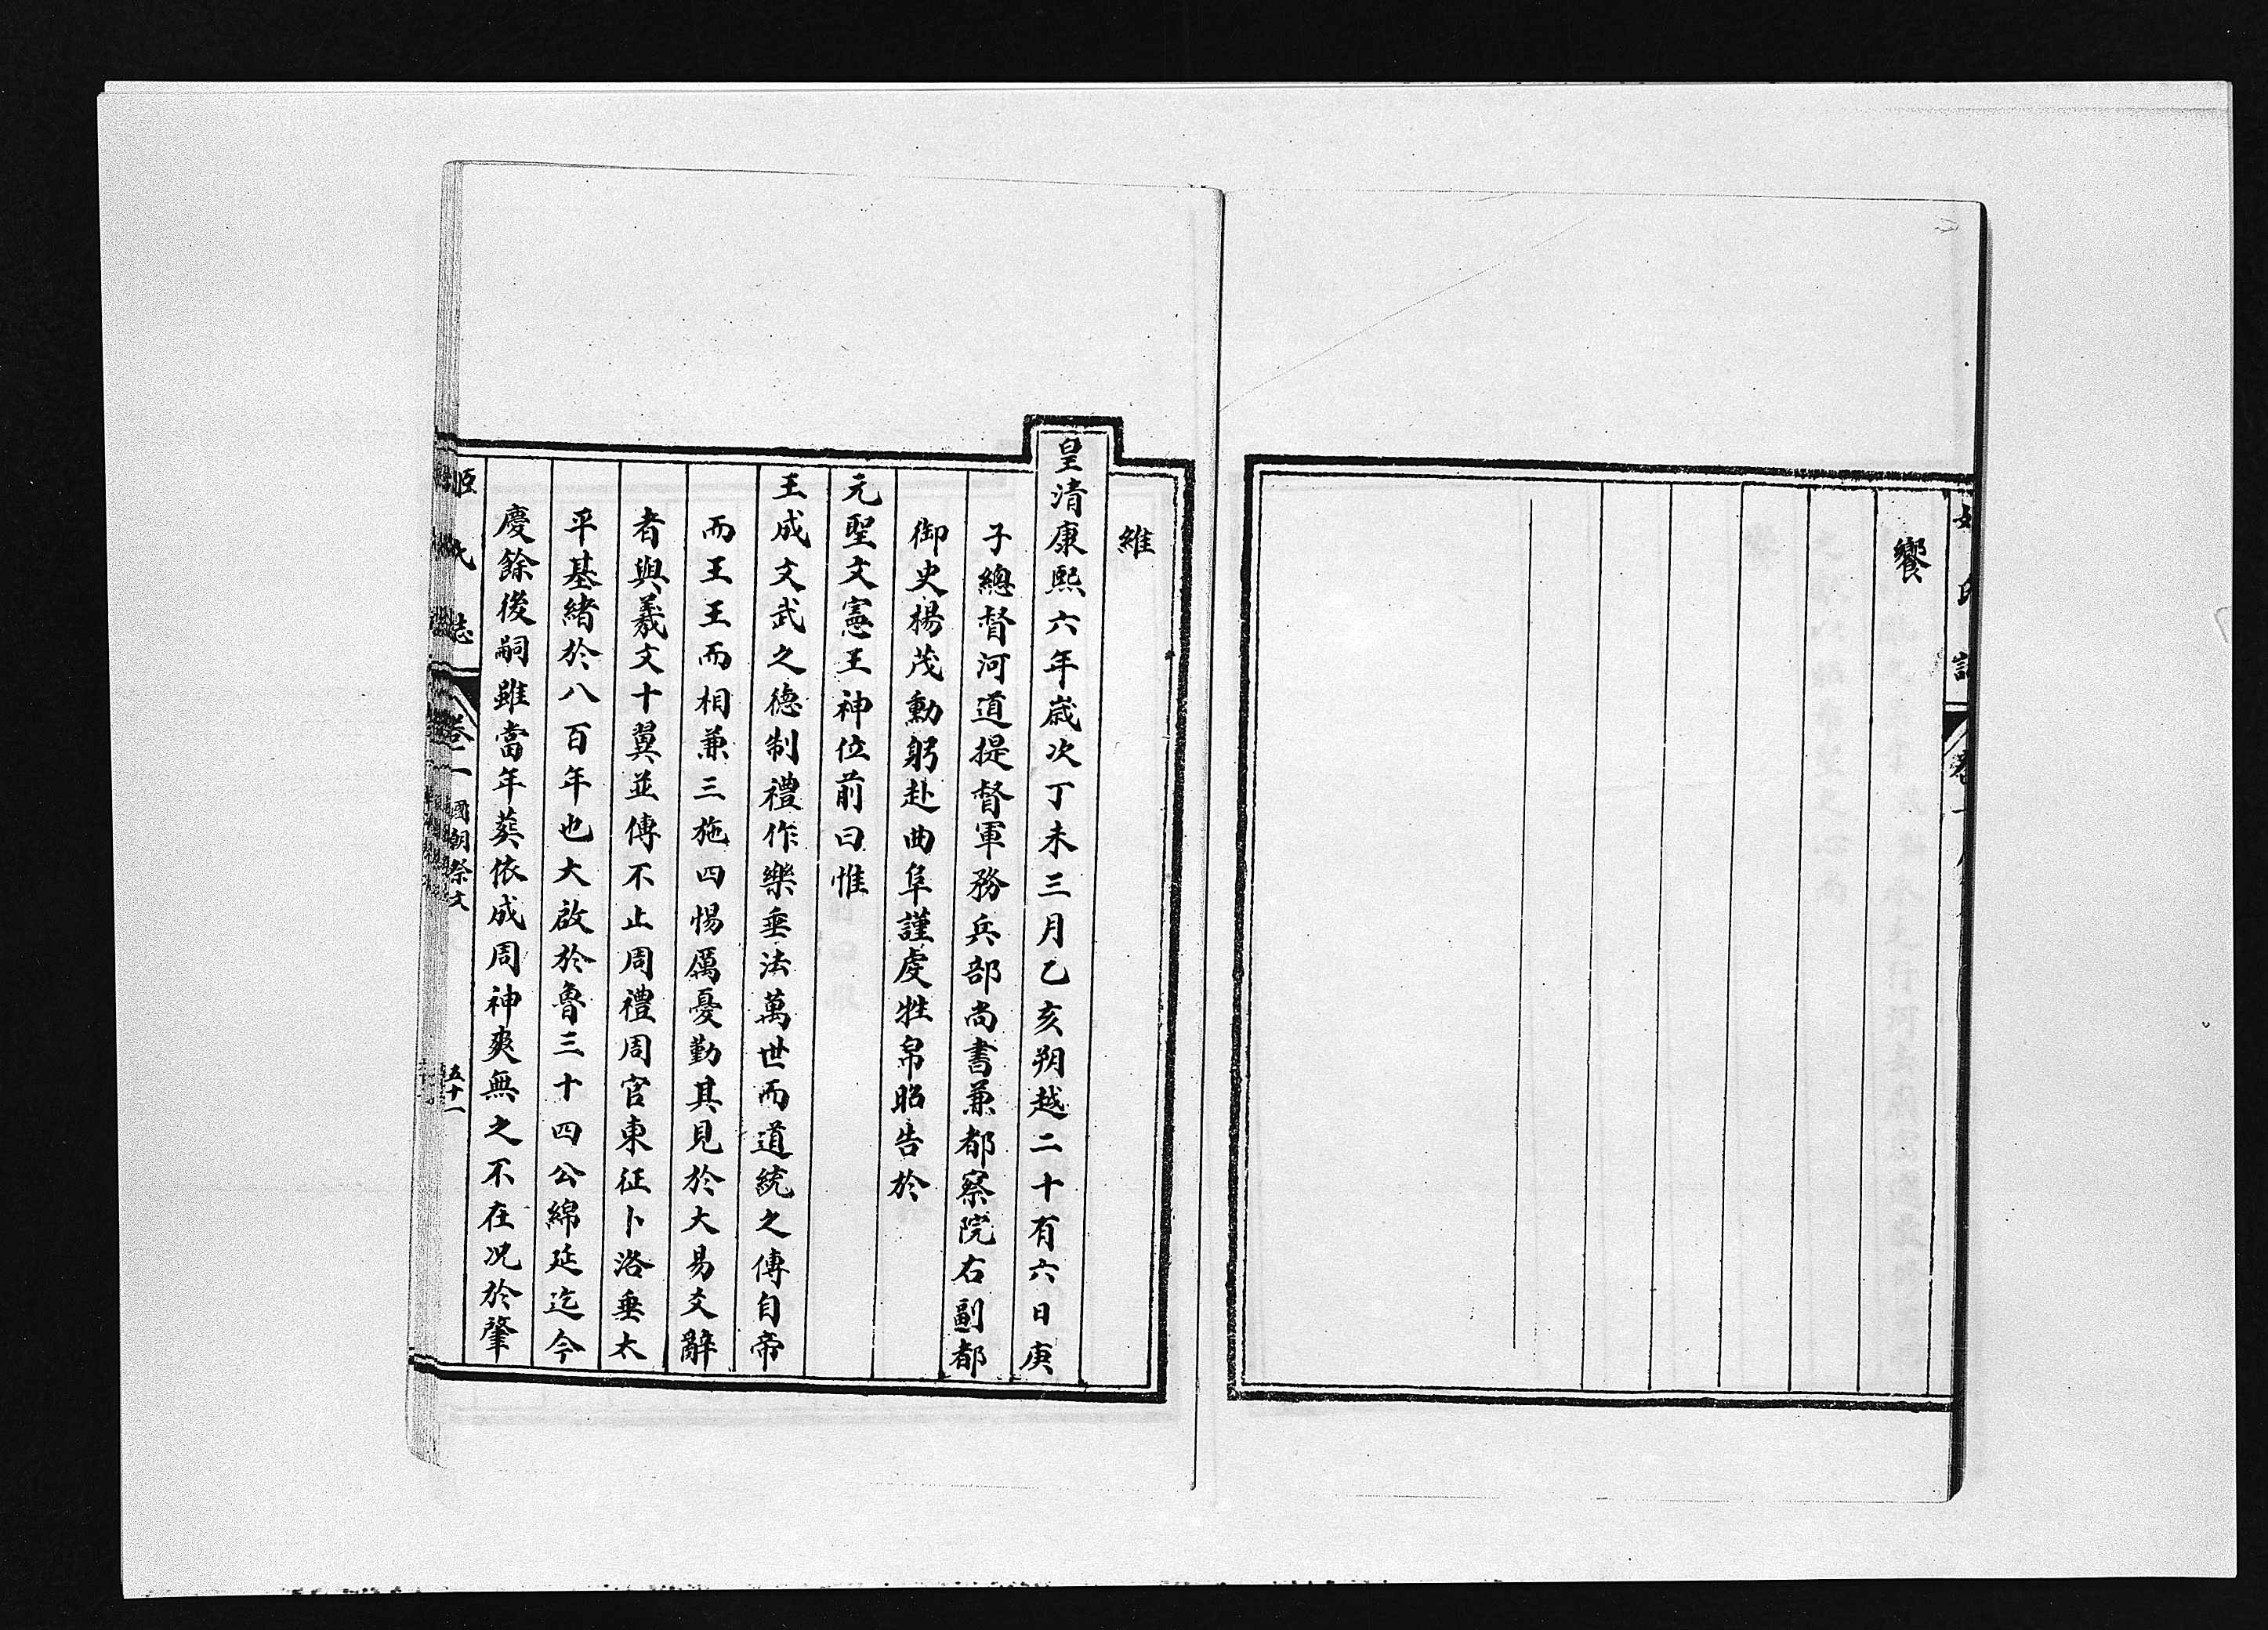 饗
維
皇清康熙六年歲次丁未三月乙亥朔越二十有六日庚
子總督河道提督軍務兵部尚書兼都察院右副都
御史楊茂勳躬赴曲阜謹虔牲帛昭告於
元聖文憲王神位前曰惟
王成文武之德制禮作樂垂法萬世而道統之傳自帝
而王王而相兼三施四惕厲憂勤其見於大易爻辭
者與羲文十翼並傳不止周禮周官東征卜洛垂太
平基緒於八百年也大啟於魯三十四公綿延迄今
慶餘後嗣雖當年葬依成周神爽無之不在況於肇
姬氏誌 卷一 國朝祭文 五十一